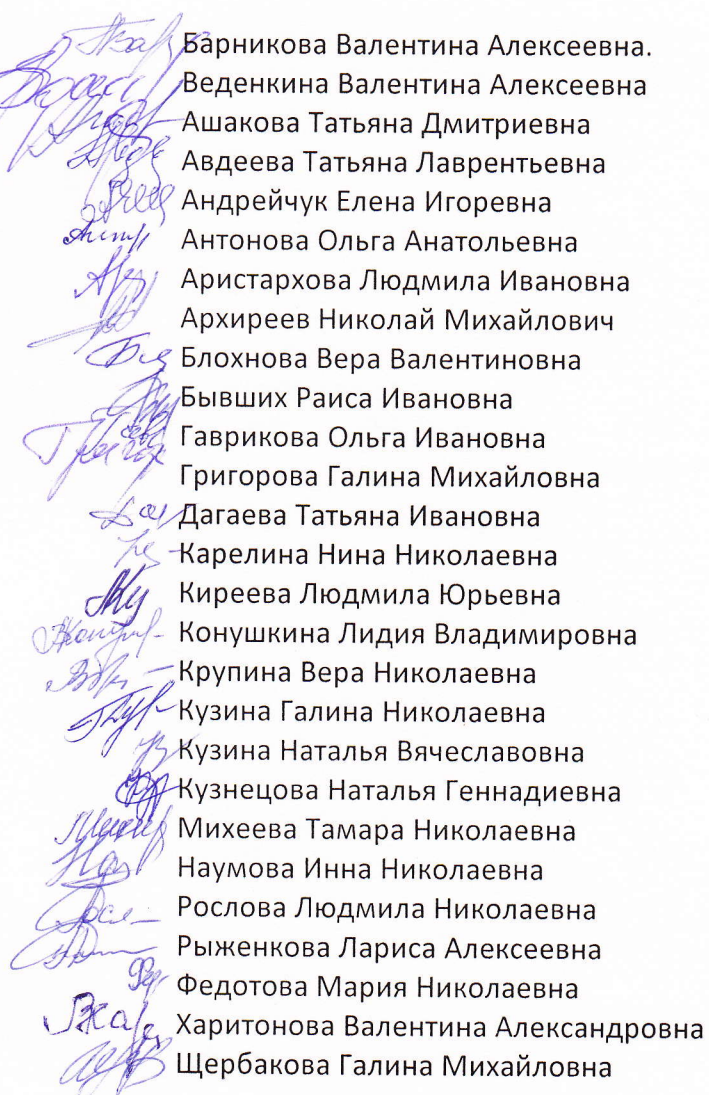 Барникова Валентина Алексеевна.
Веденкина Валентина Алексеевна
Ашакова Татьяна Дмитриевна
Авдеева Татьяна Лаврентьевна
Андрейчук Елена Игоревна
Антонова Ольга Анатольевна
Аристархова Людмила Ивановна
Архиреев Николай Михайлович
Блохнова Вера Валентиновна
Бывших Раиса Ивановна
Гаврикова Ольга Ивановна
Григорова Галина Михайловна
Дагаева Татьяна Ивановна
Карелина Нина Николаевна
Киреева Людмила Юрьевна
Конушкина Лидия Владимировна
Крупина Вера Николаевна
Кузина Галина Николаевна
Кузина Наталья Вячеславовна
Кузнецова Наталья Геннадиевна
Михеева Тамара Николаевна
Наумова Инна Николаевна
Рослова Людмила Николаевна
Рыженкова Лариса Алексеевна
Федотова Мария Николаевна
Харитонова Валентина Александровна
Щербакова Галина Михайловна